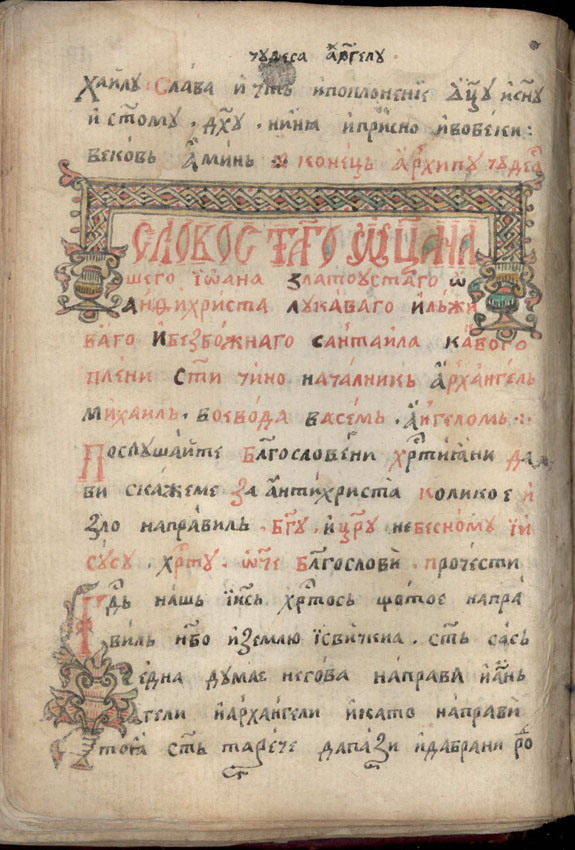 чꙋдеса а҆рⷯгелꙋ
хаилꙋ слава и҆ чⷭ҇ть и҆поклоненїе ѻ҆ц҃ꙋ и҆ сн҃ꙋ
и҆ ст҃омꙋ · дх҃ꙋ · нинѧ и҆присно и҆вовеки :
вековь а҆минь конецъ а҆рхипꙋ чꙋдеса
слово ст҃аго ѻц҃а на
шего і҆ѡана златоꙋстаго ѡ
антихриста лꙋкаваго и҆лъжи
ваго и҆безбожнаго сантаила каⷦ҇вого
плени ст҃и чино началникь а҆рхⷩ҇аггель
михаиль · воевода васемь · а҆нгеломь :
Послꙋшайте бл҃гословени хрⷭ҇тиѧни да
ви скажеме за антихриста колико е и
зло направиль · бг҃ꙋ · и҆ цр҃ꙋ небесномꙋ їи
сꙋсꙋ · хрⷭ҇тꙋ · ѡ҆ч҃е бл҃гослови прочести
Гдⷭ҇ь нашь їисⷭ҇ь хрⷭ҇тось щотое напра
виль нб҃о и҆землю їсвичкиа · ст҃ь сась
една дꙋмае негова направи и҆а҆нь
гели и҆архангели и҆като направи
тоѧ ст҃ь тарече да пази и҆дабрани